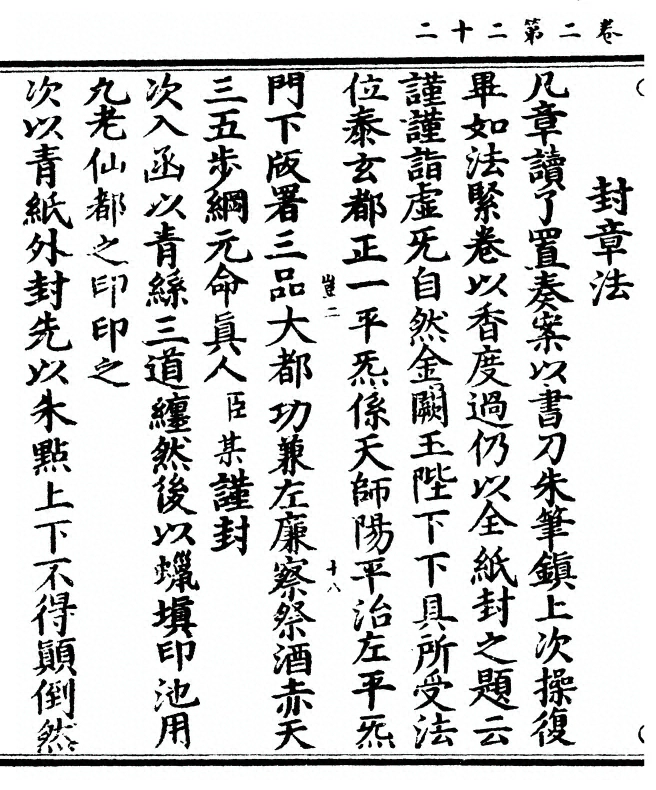 卷二第二十二
封章法
凡章讀了置奏案以書刀朱筆鎮上次操復
畢如法緊卷以香度過仍以全紙封之題云
謹謹詣虛旡自然金闕玉陛下下具所受法
位泰玄都正一平炁係天師陽平治左平炁
豈二
十八
門下版署三品大都功兼左廉察祭酒赤天
三五步綱元命眞人臣某謹封
次入函以青絲三道纏然後以蠟塡印池用
九老仙都之印印之
次以青紙外封先以朱點上下不得顚倒然